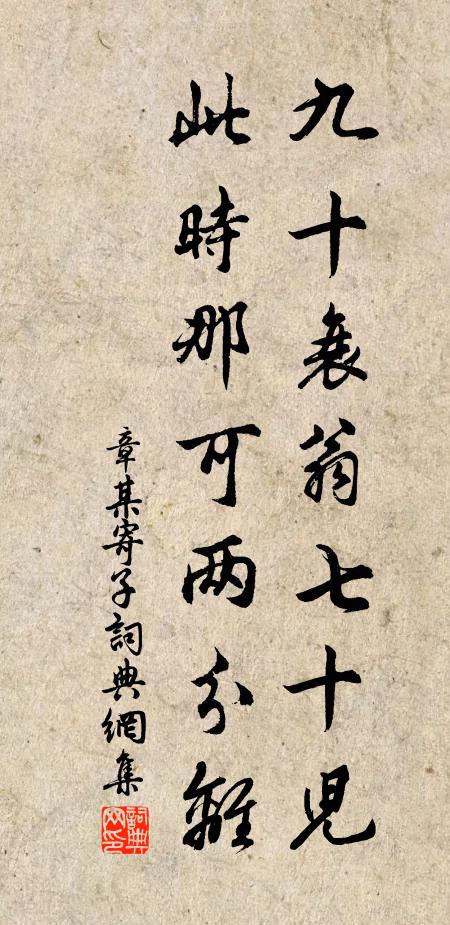 九十衰翁七十児
此時那可两分離
章某寄子詞典網集
詞典网印